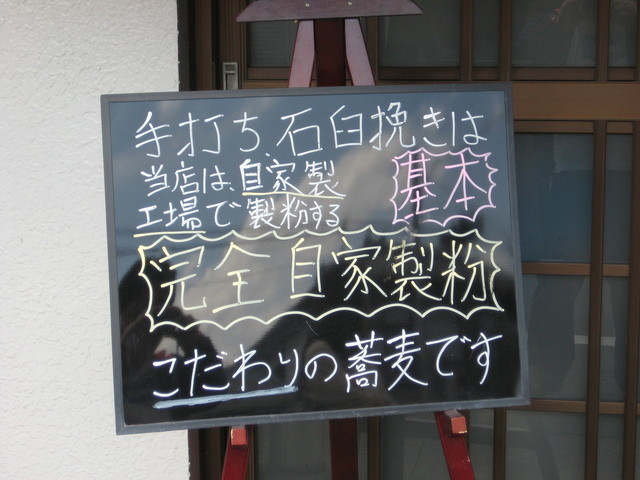 手打ち石臼挽きは
基本
当店は、自家製
工場で製粉する
完全自家製粉
こだわりの蕎麦です